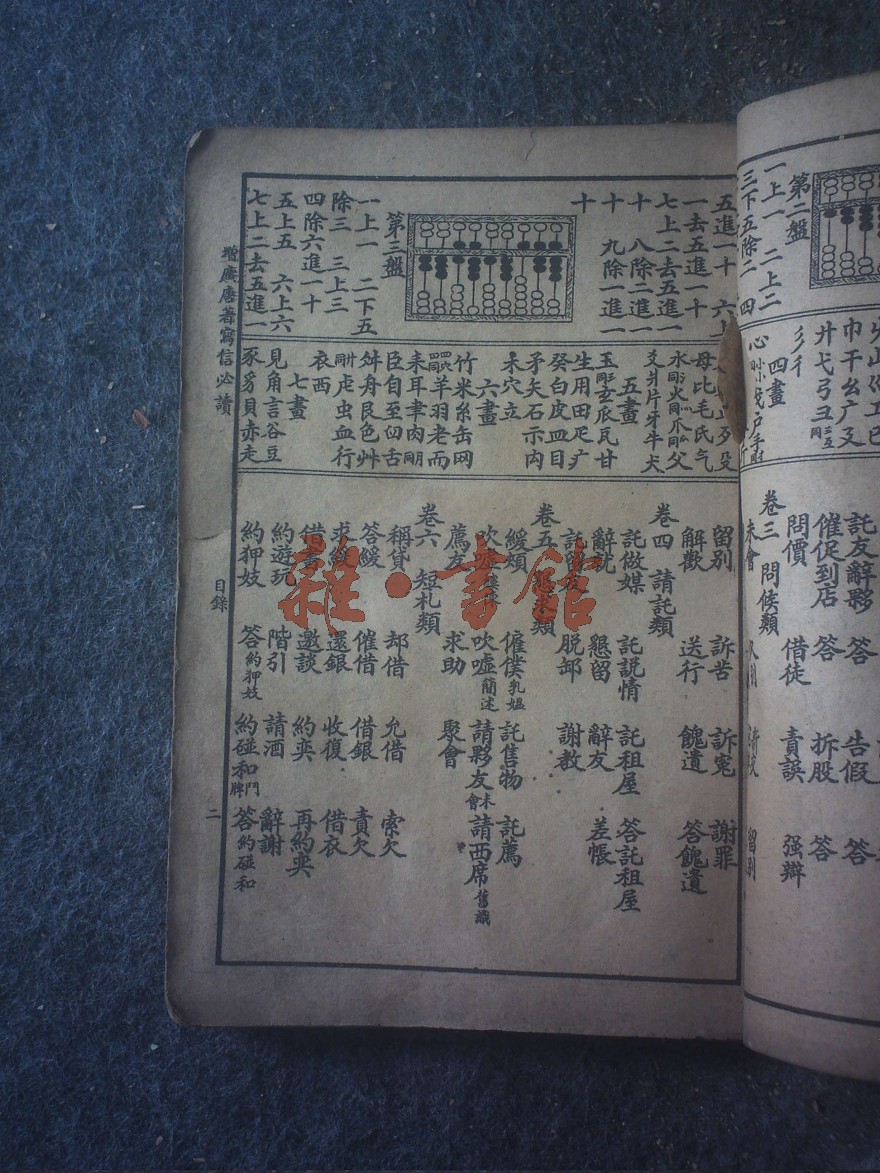 第二盤
一上一 二上二
三下五除二 四
巾干幺广廴
廾弋弓彐
彡彳
四畫
託友辭夥 答 告假 答
催促到店 答 拆股 答
問價 借徒 責誤 强辯
卷三 問候類
未會
五進一十 六上
一去五進一十
七上二去五進一
十 八除二進一
十 九除一進一
十
第三盤
一上一 二下五
除三 三上三
四除六進一十
五上五 六上六
七上二去五進一
歹殳
毋比毛氏气
爻爿片牙牛犬
五畫
玄瓜瓦甘
生用田疋疒
癸白皮皿目
矛矢石示禸
禾穴立
六畫
竹米糸缶网
羊羽老而
耒耳聿肉
臣自至臼舌
舛舟艮色艸
虍虫血行
衣西
七畫
見角言谷豆
豕豸貝赤走
留别 訴苦 訴寃 謝罪
解歡 送行 餽遺 答餽遺
卷四 請託類
託做媒 託説情 託租屋 答託租屋
懇留 辭友 差帳
脱卸 謝教
卷五
緩頰 僱僕乳媪 託售物 託薦
吹噓簡述 請夥友未會 請西席舊識
薦友 求助 聚會
卷六 短札類
稱貸 却借 允借 索欠
答緩 催借 借銀 責欠
求緩 還銀 收復 借衣
借書 邀談 約奕 再約奕
約遊玩 階引 請酒 辭謝
約狎妓 答約狎妓 約碰和門牌 答約碰和
增廣唐著寫信必讀
目錄
二
雜·書館